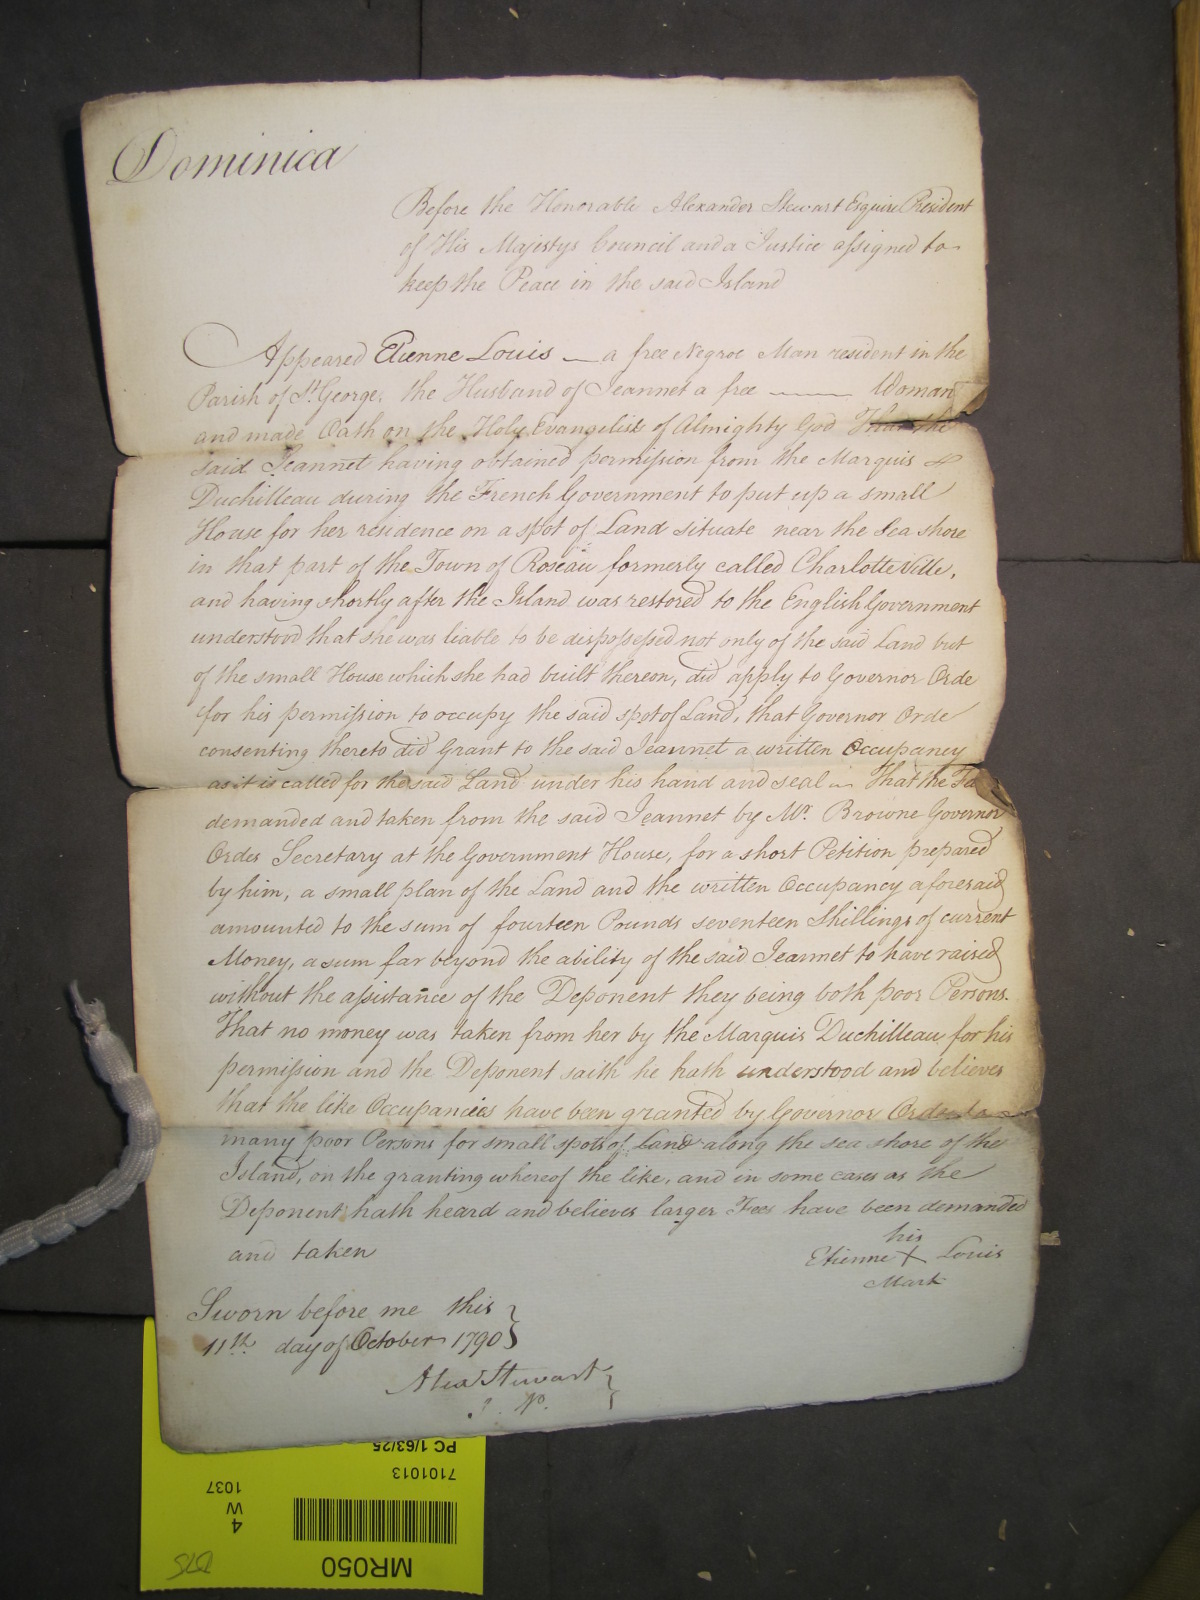 Dominica
Before the Honorable Alexander Stewart Esquire President
of His Majestys Council and a Justice assigned to
keep the Peace in the said Island
Appeared Etienne Louis a free Negroe Man resident in the
Parish of St. George, the Husband of Jeannet a free Woman
and made Oath on the Holy Evangelist of Almighty God That the
said Jeannet having obtained permission from the Marquis
Duchilleau during the French Government to put up a small
House for her residence on a spot of Land situate near the Sea shore
in that part of the Town of Roseau formerly called CharlotteVille,
and having shortly after the Island was restored to the English Government
understood that she was liable to be dispossessed not only of the said Land but
of the small House which she had built thereon, did apply to Governor Orde
for his permission to occupy the said spot of Land, that Governor Orde
consenting thereto did Grant to the said Jeannet a written Occupancy
as it is called for the said Land under his hand and seal That the
demanded and taken from the said Jeannet by Mr. Browne Governor
Ordes Secretary at the Government House, for a short Petition prepared
by him, a small plan of the Land and the written Occupancy aforesaid
amounted to the sum of fourteen Pounds seventeen Shillings of current
Money, a sum far beyond the ability of the said Jeannet to have raised
without the assistance of the Deponent they being both poor Persons.
That no money was taken from her by the Marquis Duchilleau for his
permission and the Deponent saith he hath understood and believes
that the like Occupancies have been granted by Governor Orde to
many poor Persons for small spots of Land along the sea shore of the
Island, on the granting whereof the like, and in some cases as the
Deponent hath heard and believes larger Fees have been demanded
and taken
his
Etienne X Louis
Mark
Sworn before me this
11th day of October 1790
Alex Stewart
J. P.
PC 1/63/25
7101013
4
W
1037
MR050